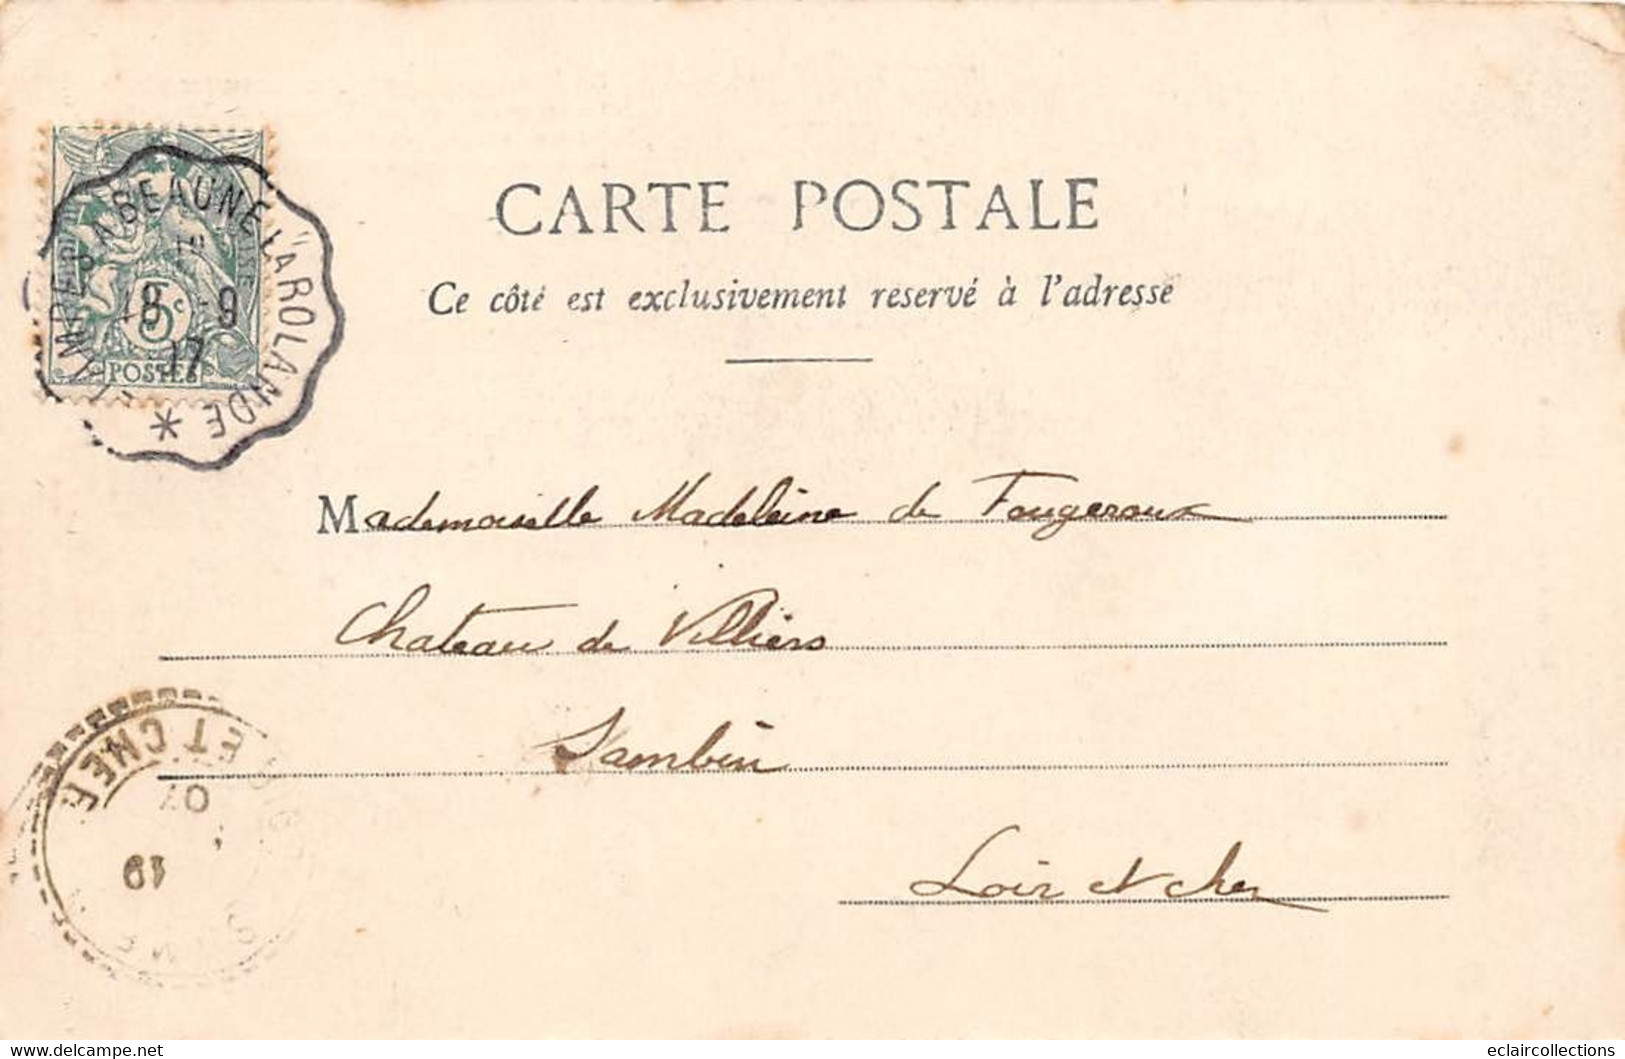 CARTE POSTALE
Ce côté est exclusivement reservé à l'adresse
ETAMPES A BEAUNE LA ROLANDE
18 -9
07
5c
POSTES
Mademoiselle Madeleine de Fougeroux
Chateau de Villiers
Sambin
Loir et cher
ET CHER
07
19
www.delcampe.net
eclaircollections